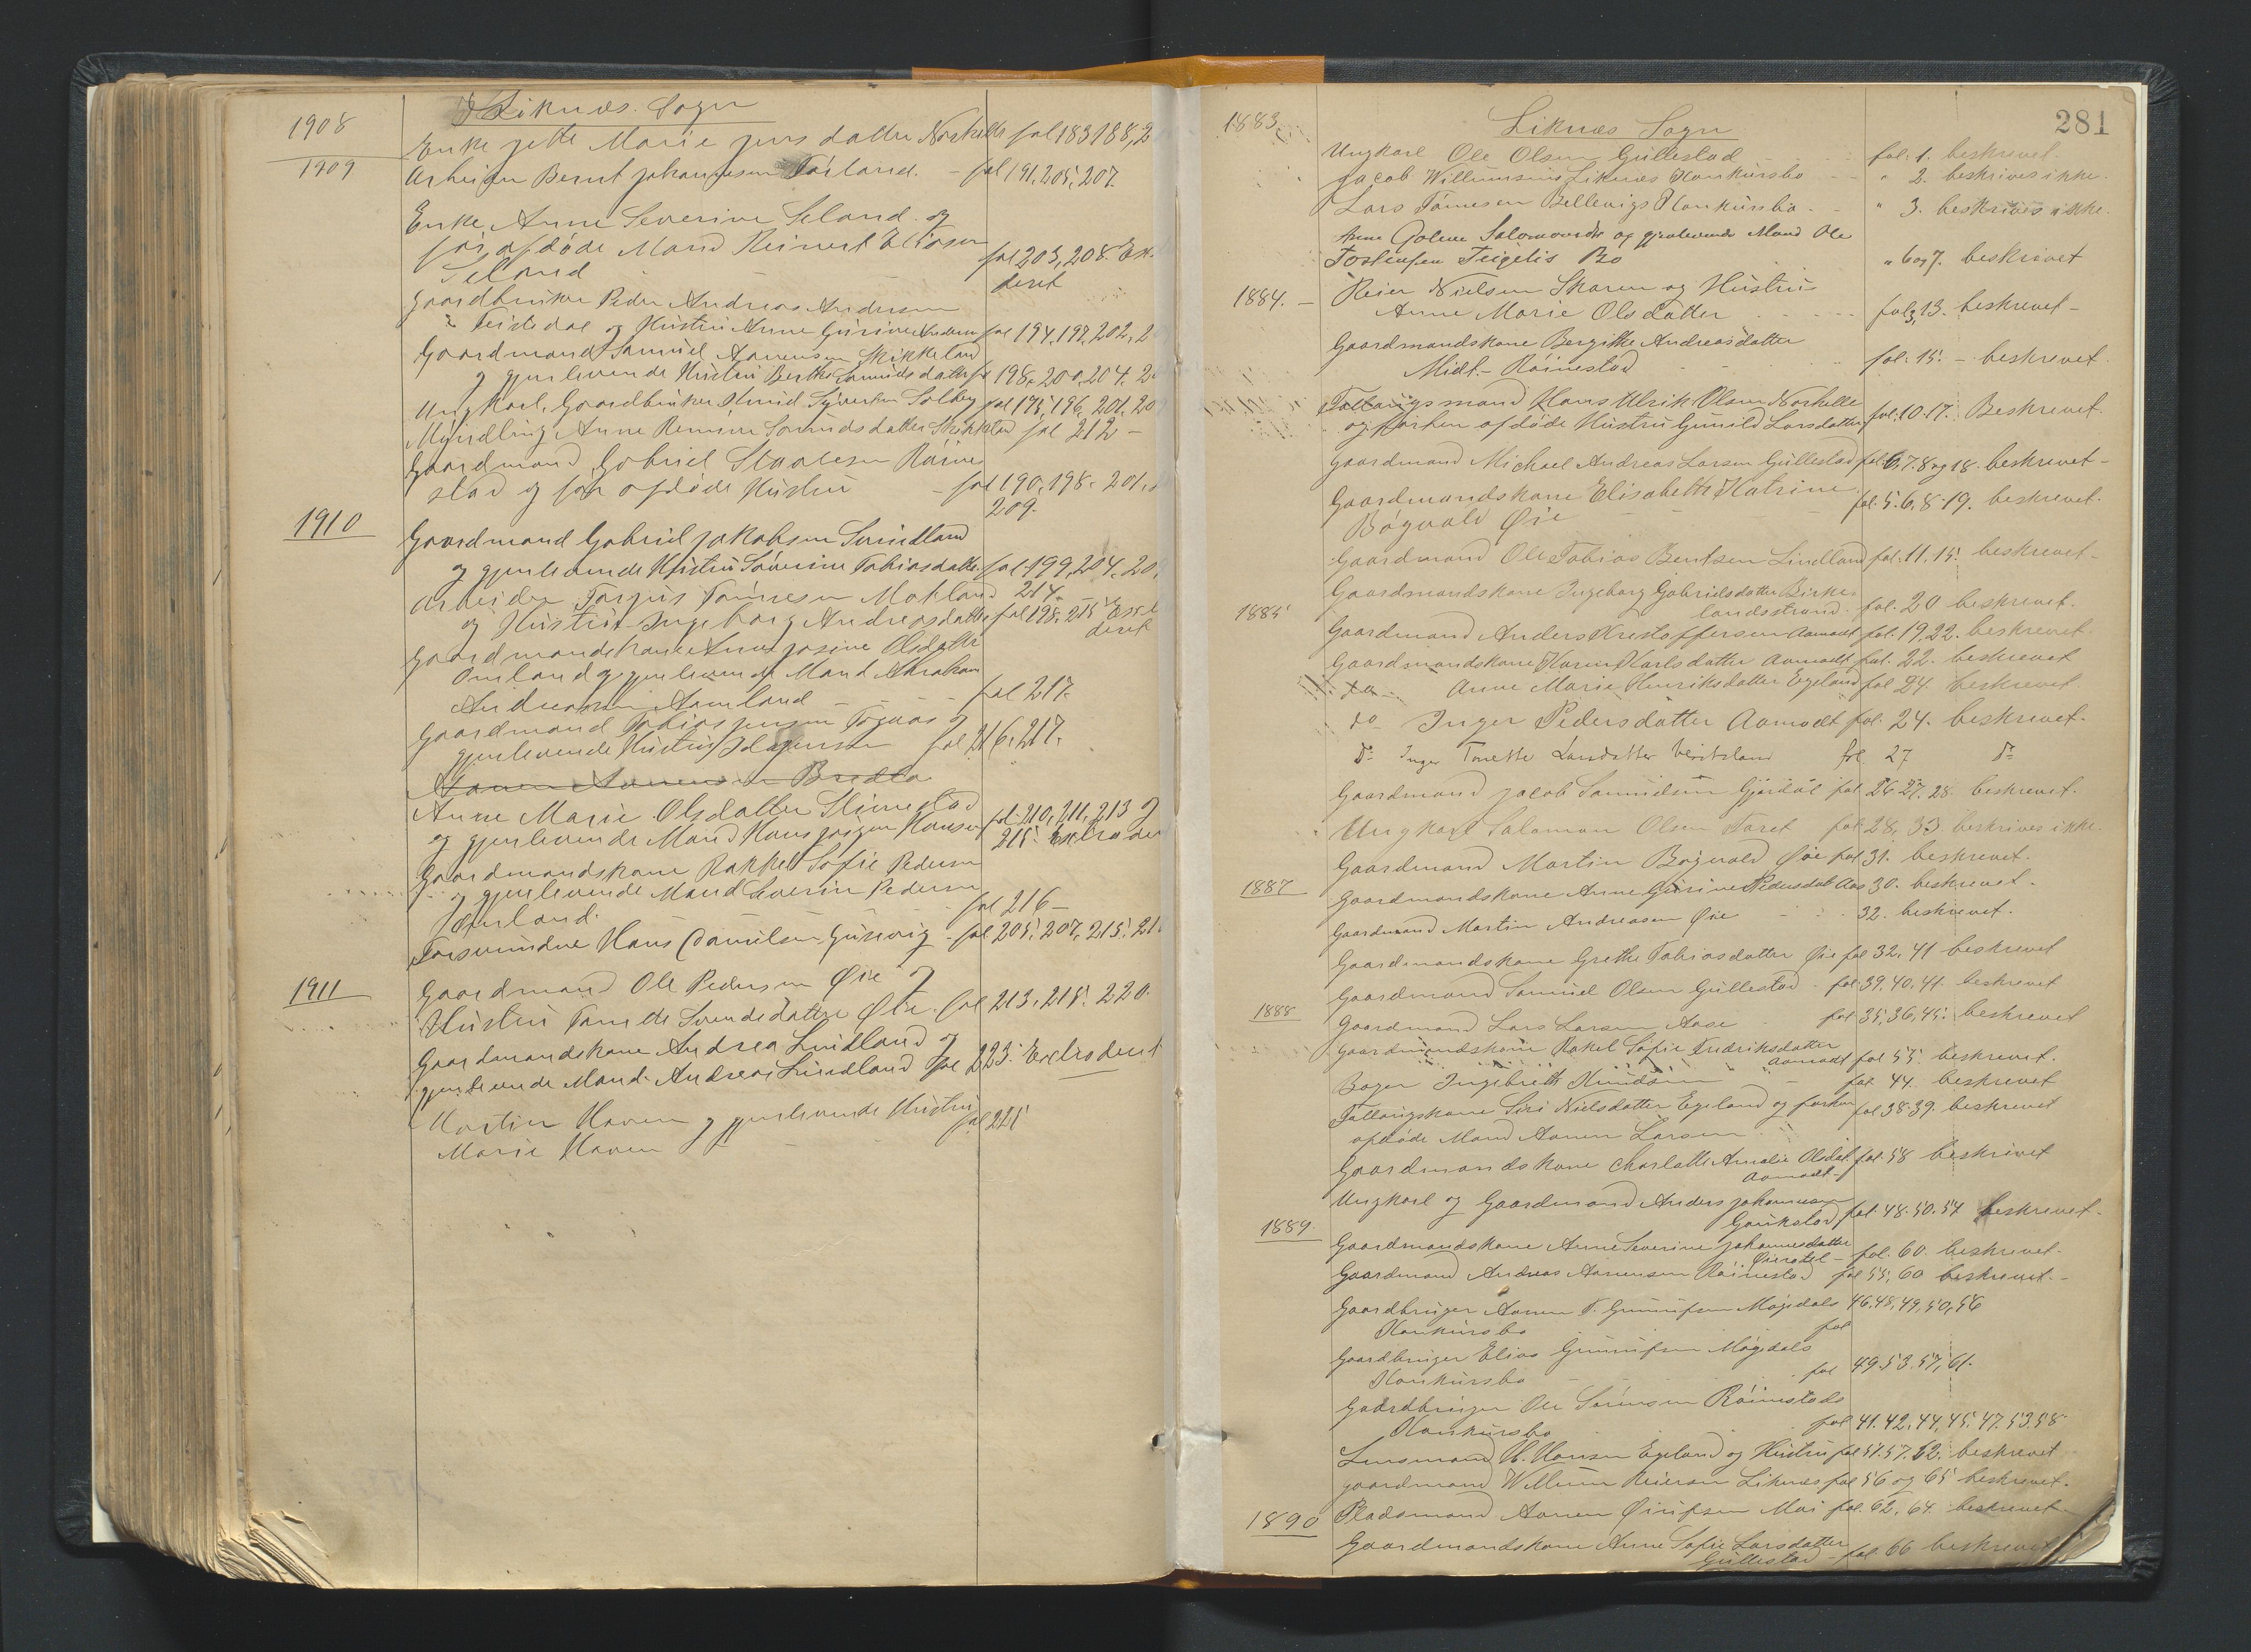 Liknæs Sogn
1908
Enke Jette Marie Jensdatter Norkelle fol 183 188, 2
1909
Arbeider Bernt Johannesen Førland. – fol 191, 205, 207.
Enke Anne Severine Seland og
før afdøde Mand Reinert Eliasen
Seland fol 203, 208. Ex.
deret
Gaardbruker Peder Andreas Andersen
Feistedal og Hustru Anne Gurine Andersen fol 194, 197, 202, 2
Gaardmand Samuel Aanensen Skikkeland
og gjenlevende Hustru Berthe Samuelsdatter fol 198, 200, 204, 2
Ungkarl, Gaardbruker Sivert Solberg fol 175, 196, 201, 20
Myndling Anne Samuelsdatter Skikkeland fol 212 –
Gaardmand Gabriel Staalesen Røine
stad og før afdøde Hustru – fol 190, 198, 201,
209.
1910
Gaardmand Gabriel Jakobsen Svindland
og gjenlevende Hustru Severine Tobiasdatter fol 199, 204, 20
214.
Arbeider Tørres Tønnesen Mohland
og Hustru Ingeborg Andreasdatter fol 198, 215
deret
Gaardmandskone Anne Josine Olsdatter
Omland og gjenlevende Mand Abraham
Andreassen Aamland – – fol 217.
Gaardmand Tobias Jensen og
gjenlevende Hustru fol 216, 217.
Aanen Aanensen Bredla
Anne Marie Olsdatter Stinestad
og gjenlevende Mand Hans Jørgen Hansen fol. 210, 211, 213 og
215. Extra der
Gaardmandskone Rakkel Sofie Pedersen
og gjenlevende Mand Severin Pedersen
fol 216 –
Forsvundne Hans Danielsen Gusevig – fol 205, 207, 215, 21
1911
Gaardmand Ole Pedersen Øie og
Hustru Tonette Svendsdatter Øie. fol 213, 218. 220.
Gaardmandskone Andrea Lindland og
gjenlevende Mand Andreas Lindland fol 223.
Martin Haven og gjenlevende Hustru
Marie Haven – fol 225
281
1883.
Liknæs Sogn
Ungkarl Ole Olsen Gullestad fol: 1. beskrevet.
Jacob Willumsens Liknæs Konkursbo " 2. beskrives ikke.
Lars Tønnesen Bellevigs Konkursbo. " 3. beskrives ikke.
Anne Golene Salomonsdtr og gjenlevende Mand Ole
Tostensen Feigelis Bo " 6 og 7. beskrevet
1884. –
Reier Nielsen Skaren og Hustru
Anne Marie Olsdatter fol 3, 13. beskrevet –
Gaardmandskone Bergitte Andreasdatter
Midt-Røinestad fol: 15. – beskrevet
Fattiigsmand Hans Ulrik Olsen Norkelle
og forhen afdøde Hustru Gunild Larsdatter fol. 10. 17. Beskrevet.
Gaardmand Michael Andreas Larsen Gullestad fol 6, 7. 8 og 18. beskrevet –
Gaardmandskone Elisabeth Katrine
Bøgvald Øie fol. 5. 6. 8. 19. beskrevet.
Gaardmand Ole Tobias Bentsen Lindland fol. 11. 15. beskrevet –
Gaardmandskone Ingeborg Gabrielsdatter Birke
landsstrand fol. 20 beskrevet.
1885
Gaardmand Anders Kristoffersen Aamodt fol. 19, 22. beskrevet.
Gaardmandskone Karen Karlsdatter Aamodt fol. 22. beskrevet
do Anne Marie Henriksdatter Egeland fol 24 beskrevet
do Inger Pedersdatter Aamodt fol. 24. beskrevet.
Do Inger Tonette Larsdatter fol. 27 Do
Gaardmand Jacob Samuelsen Gjerdal fol 26 27. 28. beskrevet.
Ungkarl Salamon Olsen fol. 28, 33 beskrives ikke.
Gaardmand Martin Bøgvald Øie fol 31. beskrevet.
1887
Gaardmandskone Anne Gurine Pedersdat Aas 30. beskrevet.
Gaardmand Martin Andreasen Øie 32. beskrevet.
Gaardmandskone Grethe Tobiasdatter Øie fol 32. 41 beskrevet
Gaardmand Samuel Olsen Gullestad fol 39, 40, 41. beskrevet
1888
Gaardmand Lars Larsen Aase fol 35, 36, 45. beskrevet
Gaardmandskone Rakel Sofie Fredriksdatter
Aamodt fol 55. beskrevet.
Bager Ingebreth Knudsen – fol 44. beskrevet
Fattigskone Siri Nielsdatter Egeland og forhen
afdøde Mand Aanen Larsen fol 38. 39. beskrevet
Gaardmandskone Charlotte Amalie Olsdat.
Aamodt – fol. 58 beskrevet
Ungkarl og Gaardmand Anders Johannesen
Gaukstad fol. 48. 50. 54 beskrevet.
1889.
Gaardmandskone Anne Severine Johannesdatter
fol. 60. beskrevet.
Gaardmand Andreas Aanensen Røinestad fol 55, 60 beskrevet. –
Gaardbruger Aanen T. Gunnufsen Møgedals 46, 48, 49, 50, 56
Konkursbo fol
Gaardbruger Elias Gunnufsen Møgedals
Konkursbo fol 49. 53. 57, 61.
Gaardbruger Ole Sørensen Røinestads
Konkursbo fol 41. 42, 44, 45. 47. 53. 58
Lensmand H. Hansen Egeland og Hustru fol 51. 57. 62. beskrevet
Gaardmand Willum Reiersen Liknæs fol 56 og 65 beskrevet.
1890
Pladsmand Aanen Moi fol. 62. 64. beskrevet
Gaardmandskone Anne Sofie Larsdatter
Gullestad – fol. 66 beskrevet